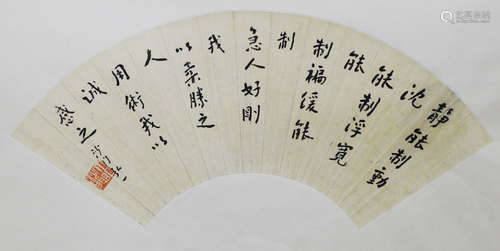 靜能制動
沈
能制浮寬
能
制褊緩能
制
急人好剛
我
以柔勝之
人
用術我以
誠
感之
沙門弘一